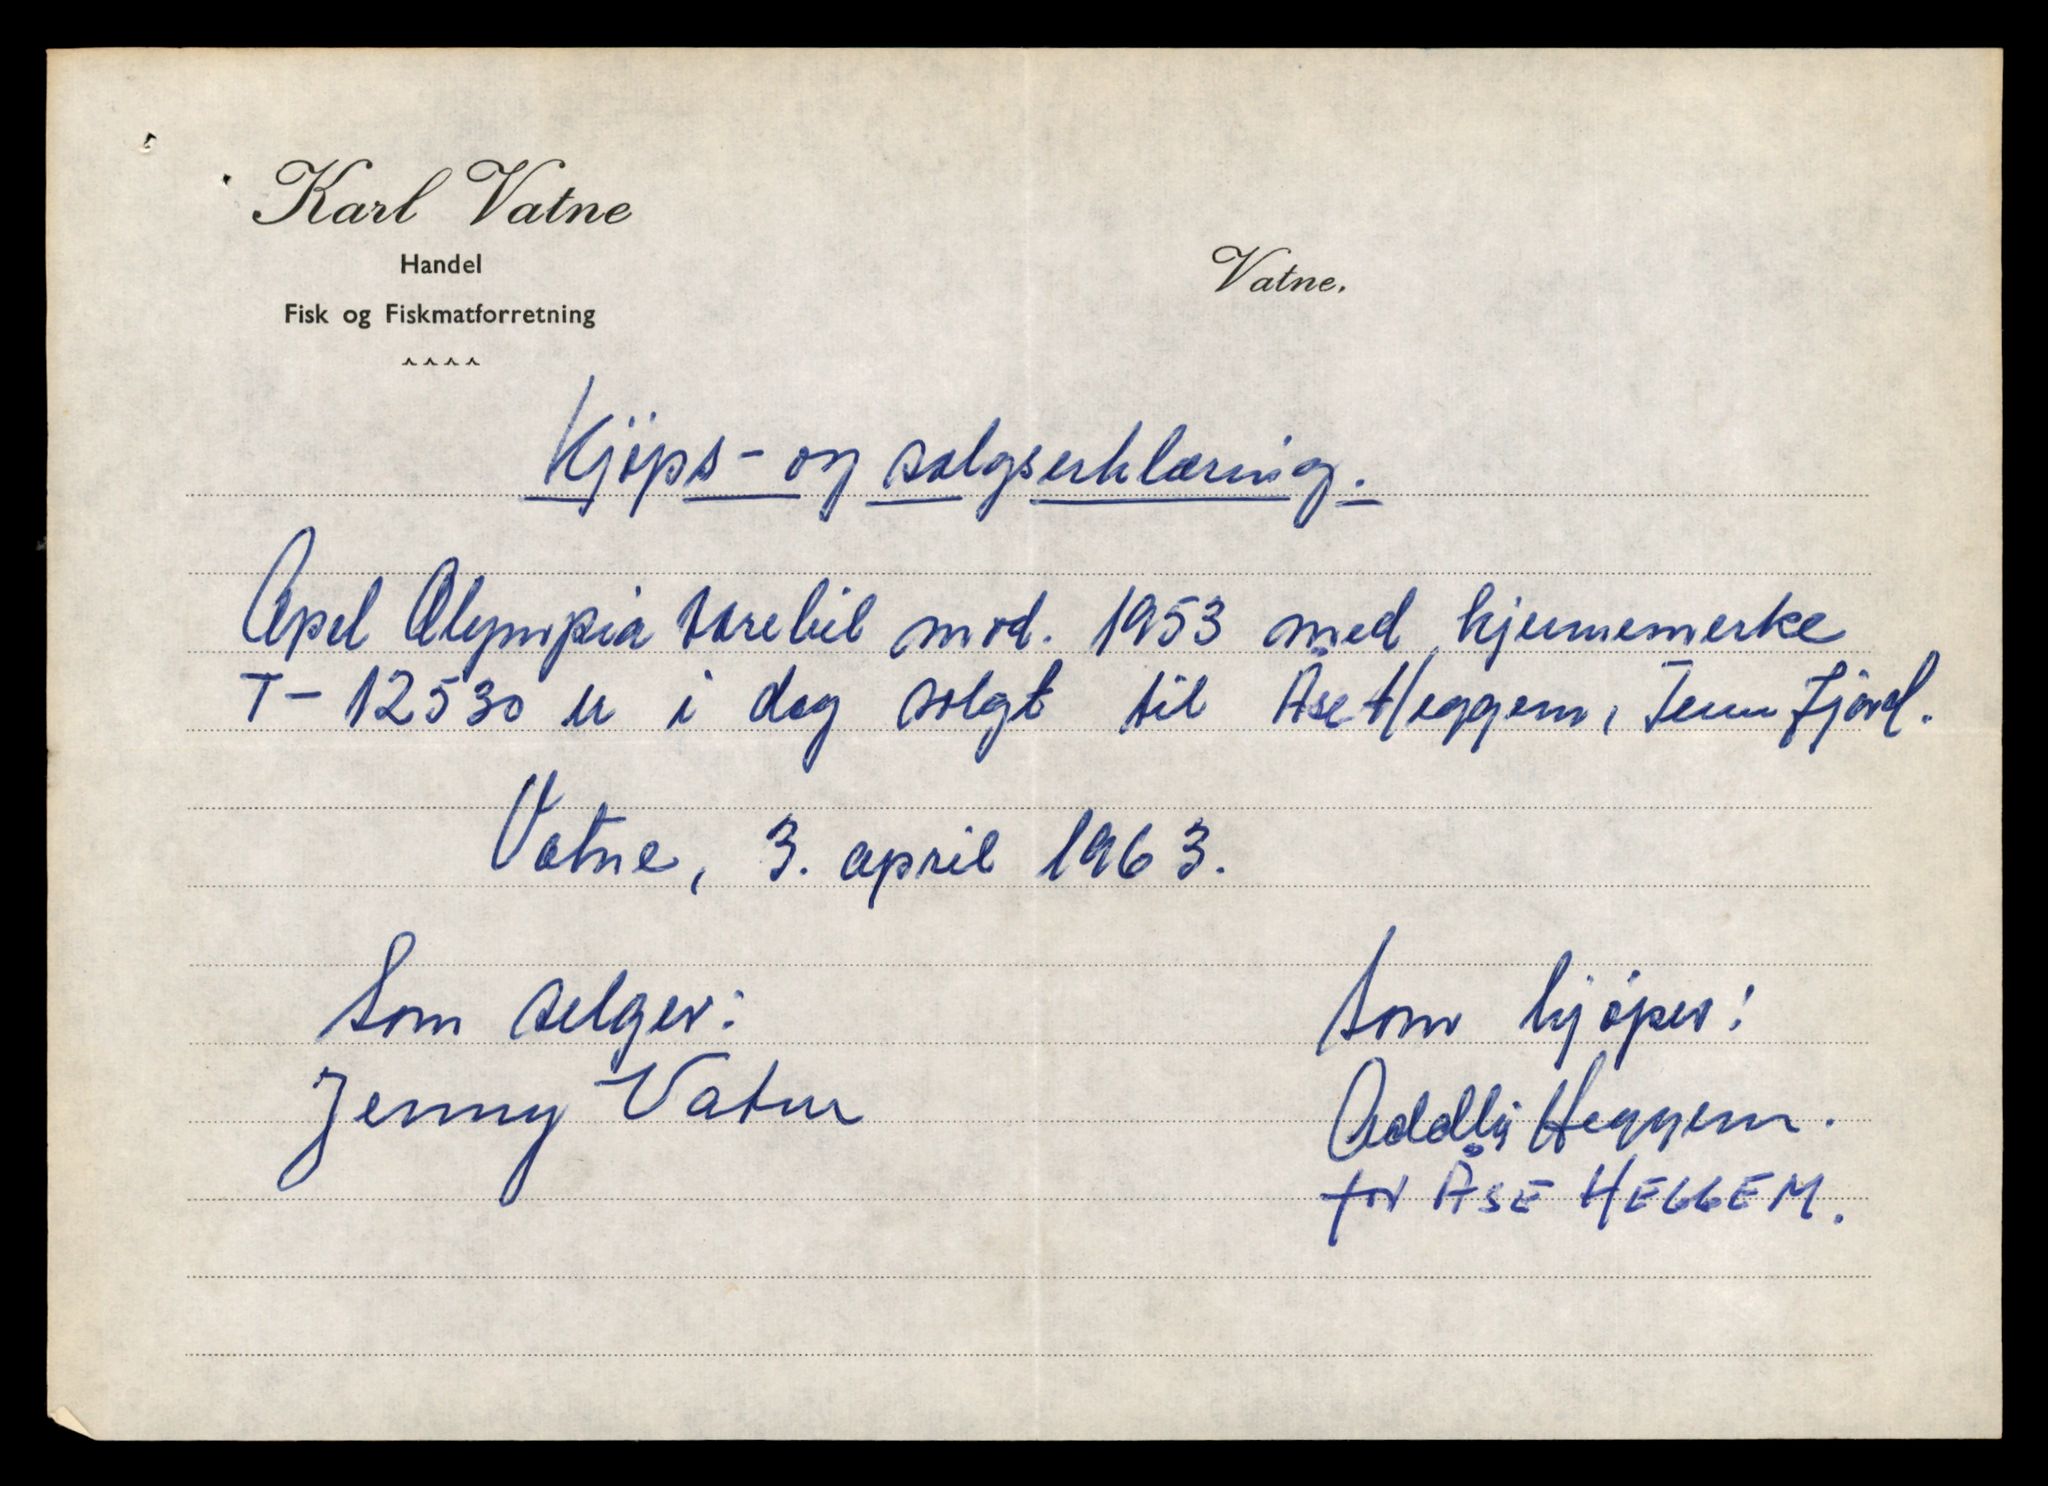 Karl Vatne
Handel
Fisk og Fiskmatforretning
Vatne.
Kjøps- og salgserklæring.
Opel Olympia varebil mod. 1953 med kjennemerke
T- 12530 er i dag solgt til Åse Heggem, Tennfjord.
Vatne, 3. april 1963.
Som selger:
Jenny Vatne
Som kjøper:
Oddly Heggem.
for ÅSE HEGGEM.